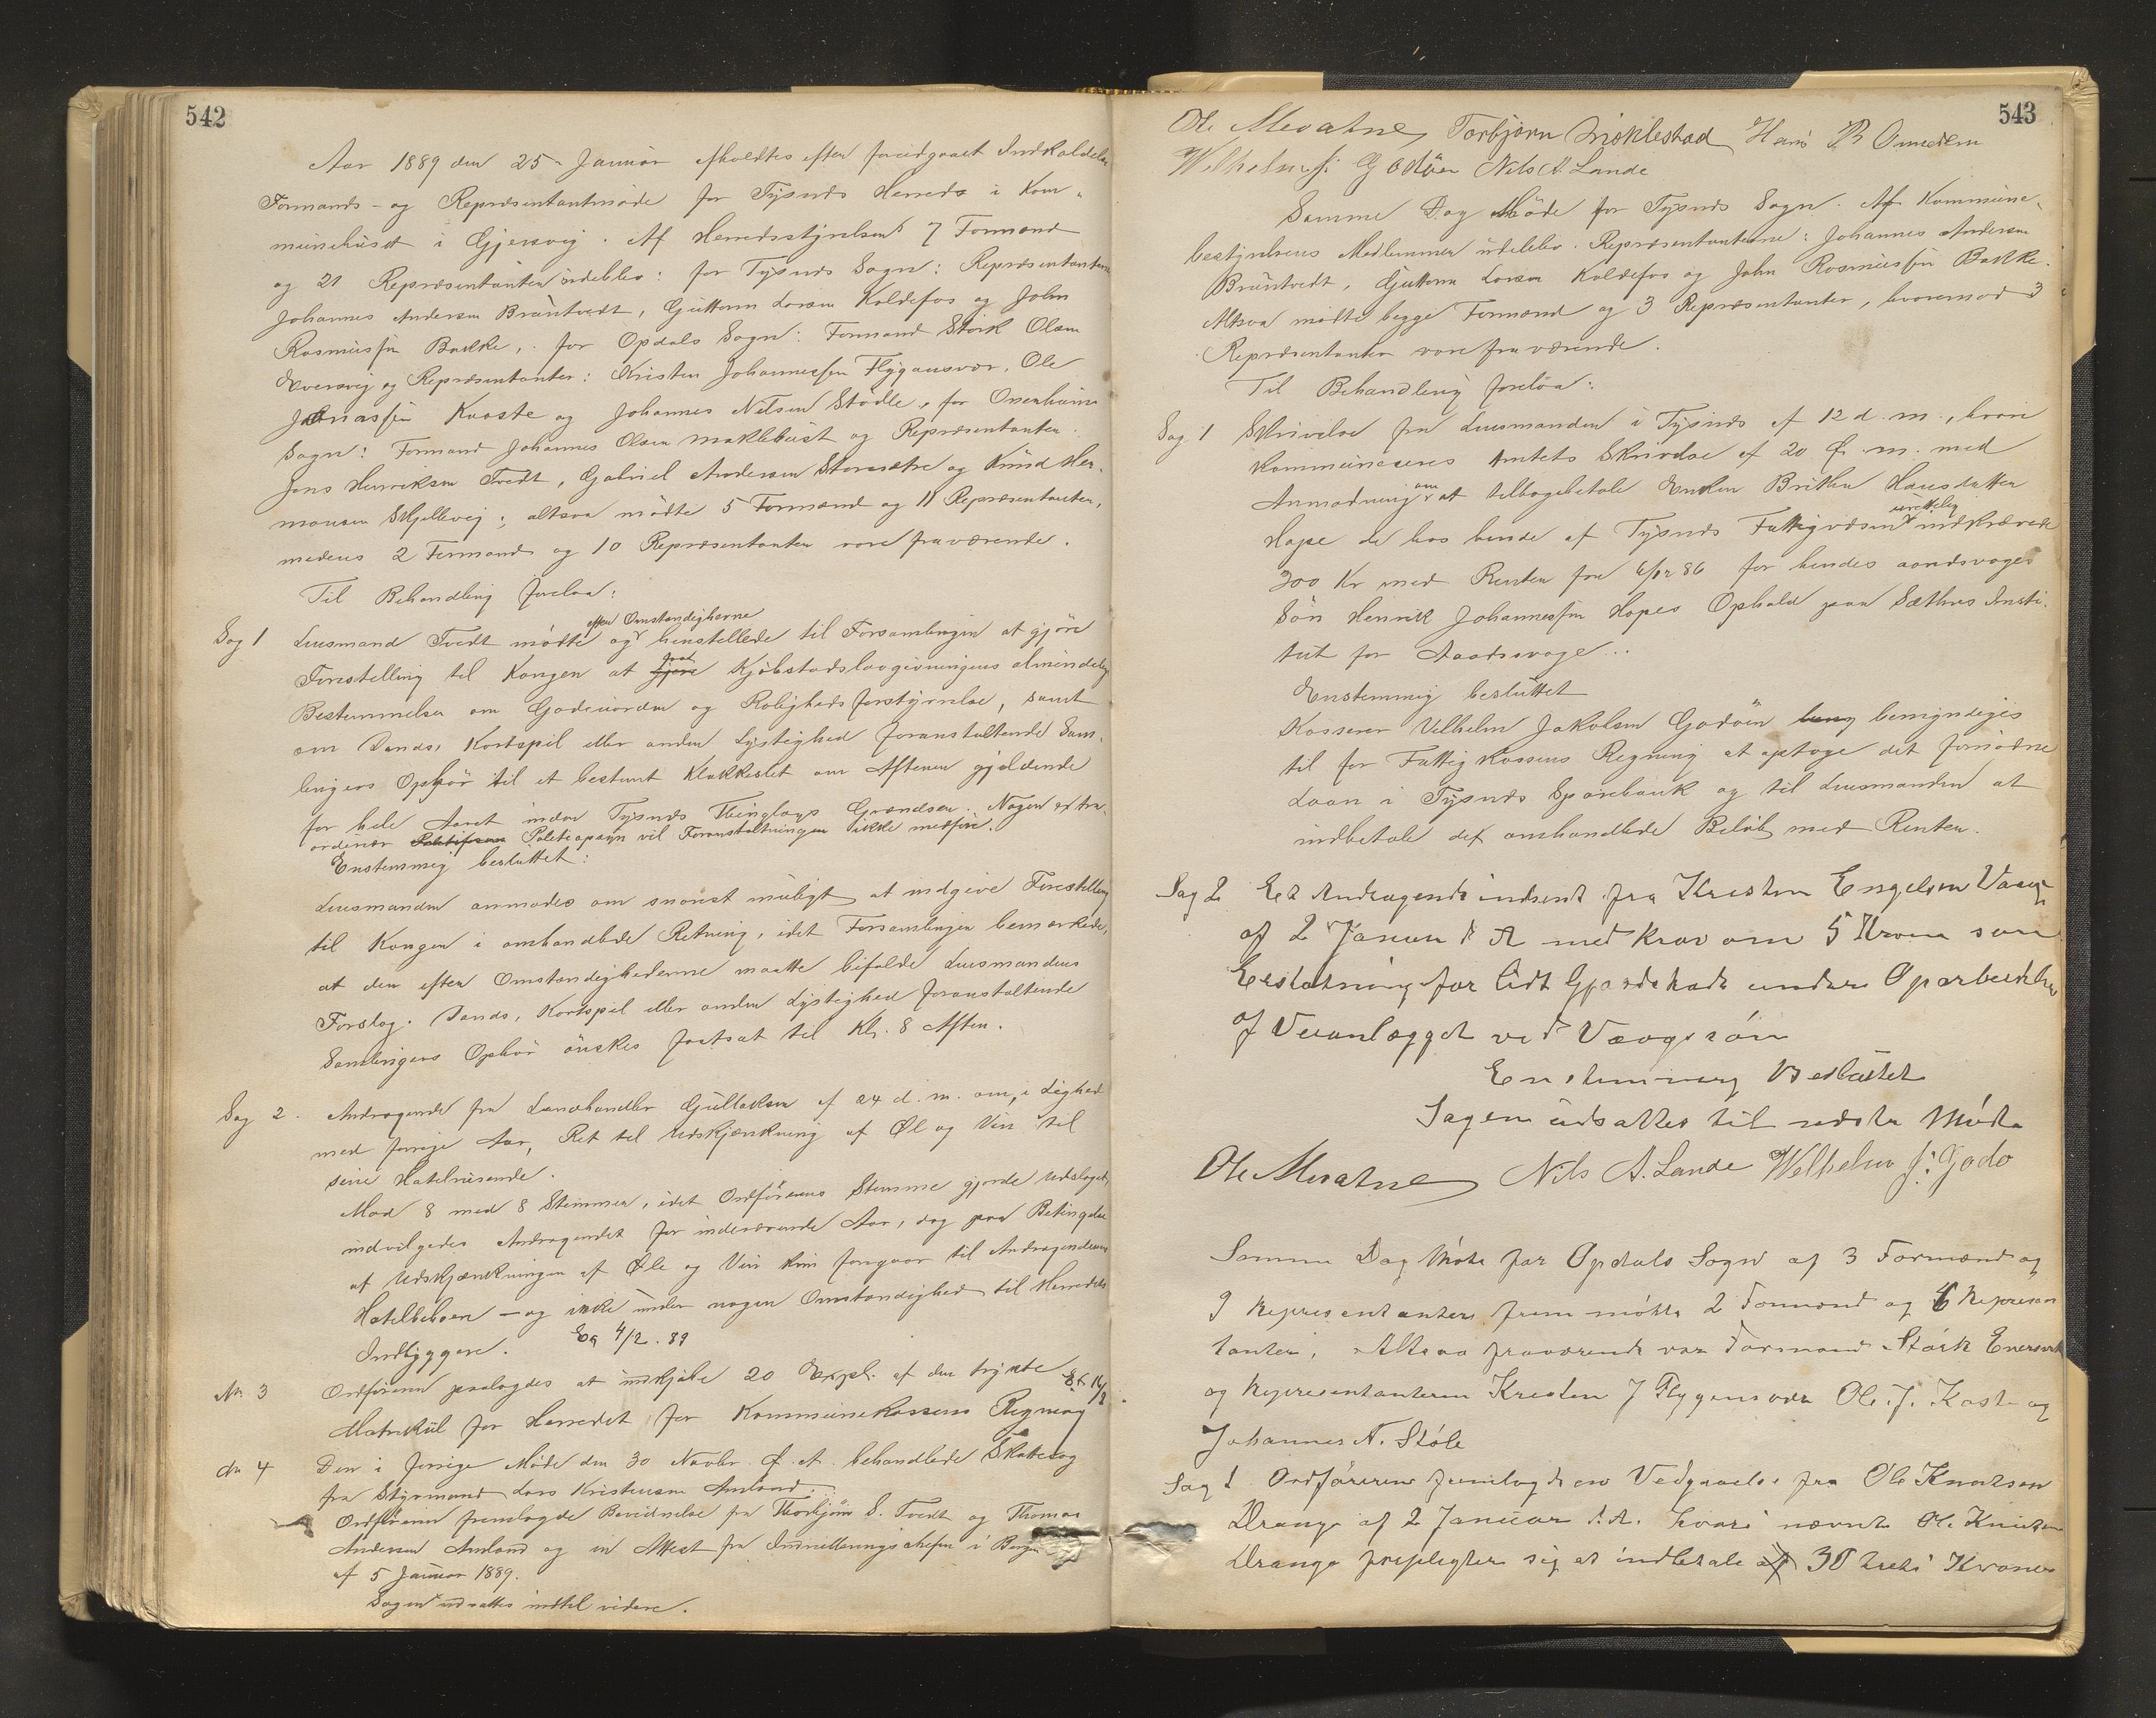 542
Aar 1889 den 25de Januar afholdtes efter foregaaet Indkaldelse
Formands- og Repræsentantmøde for Tysnes Herred i Kom-
munehuset i Gjersvig. Af Herredsstyrelsens 7 Formænd
og 21 Repræsentanter udeblev: for Tysnes Sogn: Repræsentanterne
Johannes Andersen Brüntvedt, Guttorm Larsen Koldefos og John
Rasmussen Bakke, for Opdals Sogn: Formand Störk Olsen
Eversvig og Repræsentanter: Kristen Johannessen Flygansvær, Ole
Jonassen Kvaste og Johannes Nilsen Stödle, for Onarheims
Sogn: Formand Johannes Olsen Maklebust og Repræsentanter
Jens Henriksen Tvedt, Gabriel Andersen Storesætre og Knud Her-
mansen Skjellevig; altsaa mödte 5 Formænd og 11 Repræsentanter,
medens 2 Formænd og 10 Repræsentanter vare fraværende.
Til Behandling forelaa:
Sag 1 Lensmand Tvedt mödte og efter Omstændigherne henstillede til Forsamlingen at gjöre
Forestilling til Kongen at gjöre Kjöbstadslovgivningens almindelige
Bestemmelser om Gadeuorden og Roligheds forstyrrelse, samt
om Dands, Kortspil eller anden Lystighed foranstaltende Sam-
lingers Ophör til et bestemt Klokkeslet om Aftenen gjeldende
for hele Aaret inden Tysnes Thinglags Grændser. Nogen extra-
ordinær Politiopsyn vil Foranstaltningen ikke medföre.
Enstemmig besluttet:
Lensmanden anmodes om snarest muligt at indgive Forestilling
til Kongen i omhandlede Retning, idet Forsamlingen bemærkede,
at den efter Omstændighederne maatte bifalde Lensmandens
Forslag. Dands, Kortspil eller anden Lystighed foranstaltende
Samlingers Ophör önskes fastsat til Kl. 8 Aften.
Sag 2. Andragende fra Landhandler Gullaksen af 24 d. m. om, i Lighed
med forrige Aar, Ret til Udskjænkning af Øl og Vin til
sine Hotelreisende.
Mod 8 med 8 Stemmer, idet Ordförerens Stemme gjorde Udslaget,
indvilgedes Andragendet for indeværende Aar, dog paa Betingelse
af Udskjænkningen af Øle og Vin kun foregaar til Andragendes
Hotelbeboere — og ikke under nogen Omstændighed til Herredets
Indbyggere. Ex 4/2. 89
No. 3 Ordföreren paalagdes at indkjöbe 20 Expl. af den trykte
Matrikül for Herredet for Kommunekassens Regning
do 4 Den i forrige Møde den 30 Novbr. f. A. behandlede Skattesag
fra Styrmand Lars Kristensen Amland.
Ordföreren fremlagde Bevidnelse fra Thorbjörn S. Tvedt og Thomas
Andersen Amland og en Attest fra Indrulleringschefen i Bergen
af 5 Januar 1889.
Sagen udsattes indtil videre.
543
Ole Mevatne Torbjørn Miklestad Hans B Onarheim
Wilhelm J: Godöen Nils A. Lande
Samme Dag Møde for Tysnes Sogn. Af Kommune-
bestyrelsens Medlemmer udeblev. Repræsentanterne: Johannes Andersen
Brüntvedt, Guttorm Larsen Koldefos og John Rasmussen Bakke.
Altsaa mødte begge Formænd og 3 Repræsentanter, hvorimod 3
Repræsentanter vare fraværende.
Til Behandling forelaa:
Sag 1 Skrivelse fra Lensmanden i Tysnes af 12 d. m., hvori
kommuniceres Amtets Skrivelse af 20 f. m. med
Anmodning om at tilbagebetale Enken Britha Hansdatter
Hope de hos hende af Tysnes Fattigvæsen urettelig indkrævede
200 Kr med Renter fra 6/12 86 for hendes aandsvage
Sön Henrik Johannessen Hopes Ophold paa Sæthres Insti-
tut for Aandsvage.
Enstemmig besluttet
Kasserer Vilhelm Jakobsen Godöen bemyndiges
til for Fattigkassens Regning at optage det fornödne
Laan i Tysnes Sparebank og til Lensmanden at
indbetale det omhandlede Belöb med Renter.
Sag 2 Et Andragende indsendt fra Kristen Engelsen Vaage
af 2 Januar d A med Krav om 5 Kroner som
Erstatning for lidt Gjærdskade under Oparbeidelse
af Veianlægget ved Vaagsöen
Enstemmig Besluttet
Sagen udsattes til næste Møde
Ole Mevatne Nils A. Lande Wilhelm J: Godö
Samme Dag Möte for Opdals Sogn af 3 Formænd og
9 Representanter frem mötte 2 Formænd og 6 Represen
tanter, Altsaa fraværende var Formand Störk Eversvik
og Representanterne Kristen J Flygensvær Ole J. Kaste og
Johannes N. Støle
Sag 1 Ordföreren fremlagde en Vedgaaelse fra Ole Knutsen
Drange af 2 Januar d. A. hvori nævnte Ole Knutsen
Drange forpligter sig at indbetale 30 treti Kroner